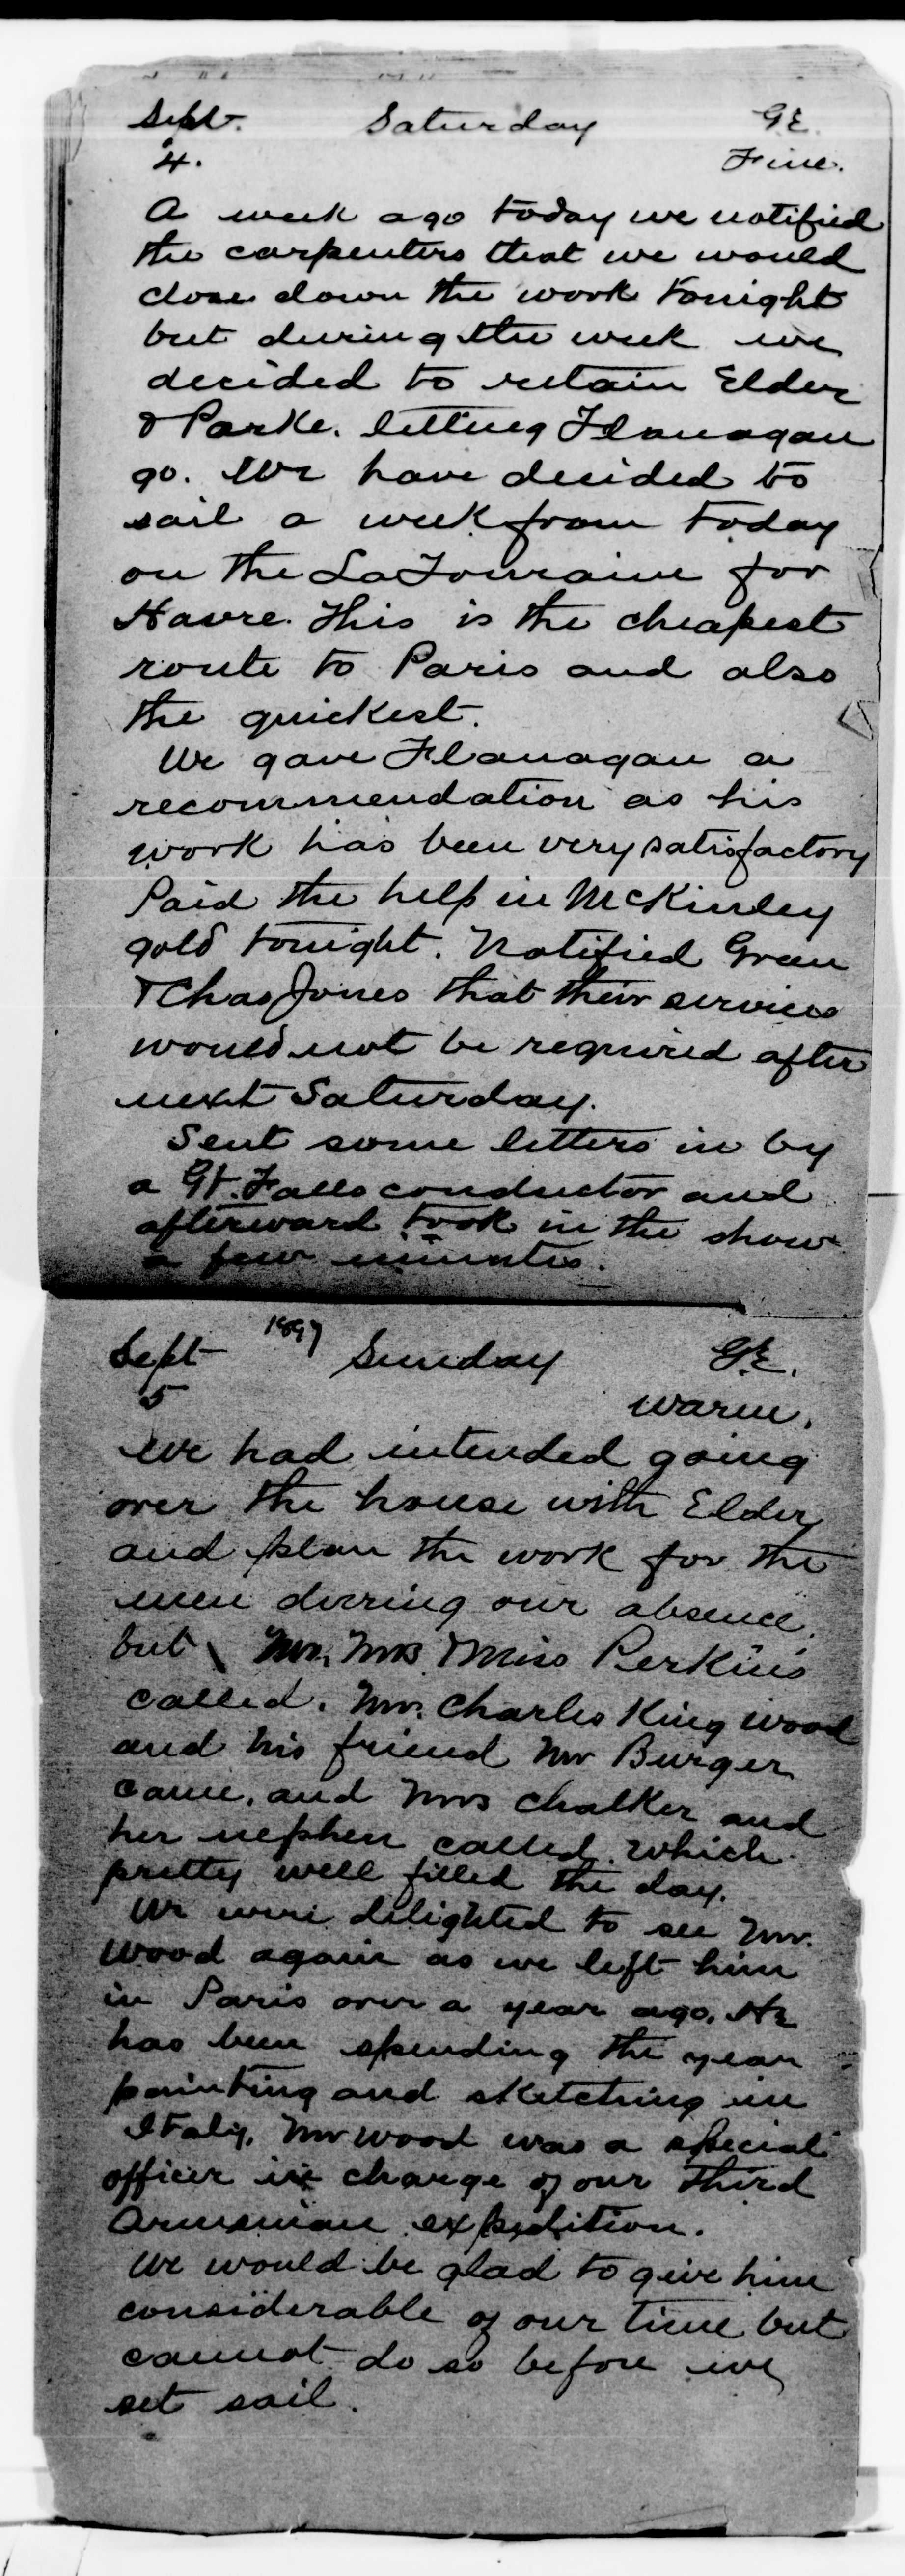 Sept. Saturday G.E.
4. Fine.
A week ago today we notified
the carpenters that we would
close down the work tonight
but during the week we
decided to retain Elder
& Parke. letting Flanagan
go. We have decided to
sail a week from today
on the La Touraine for
Havre. This is the cheapest
route to Paris and also
the quickest.
We gave Flanagan a
recommendation as his
work has been very satisfactory
Paid the help in McKinley
gold tonight. Notified Green
& Chas Jones that their services
would not be required after
next Saturday.
Sent some letters in by
a Gt. Falls conductor and
afterward took in the show
a few minutes.
Sept 1897 Sunday G.E.
5 Warm.
We had intended going
over the house with Elder
and plan the work for the
men during our absence,
but Mr. Mrs & Miss Perkins
called. Mr. Charles King Wood
and his friend Mr Burger
came, and Mrs Chalker and
her nephew called. which
pretty well filled the day.
We were delighted to see Mr.
Wood again as we left him
in Paris over a year ago. He
has been spending the year
painting and sketching in
Italy. Mr Wood was a special
officer in charge of our third
Armenian expedition.
We would be glad to give him
considerable of our time but
cannot do so before we
set sail.